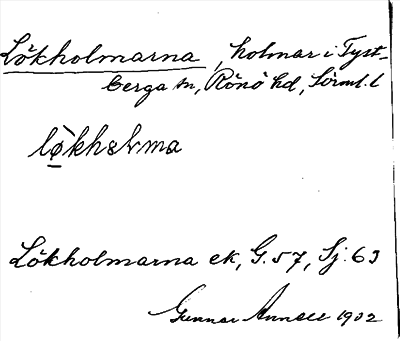 Lökholmarna, holmar i Tyst-
berga sn, Rönö hd, Sörml. l
Lökholmarna ek, G. 57, Sj. 63
Gunnar Annell 1932